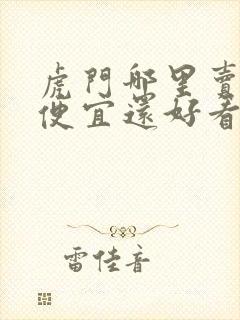 虎門哪里賣
便宜還好看
雷佳音